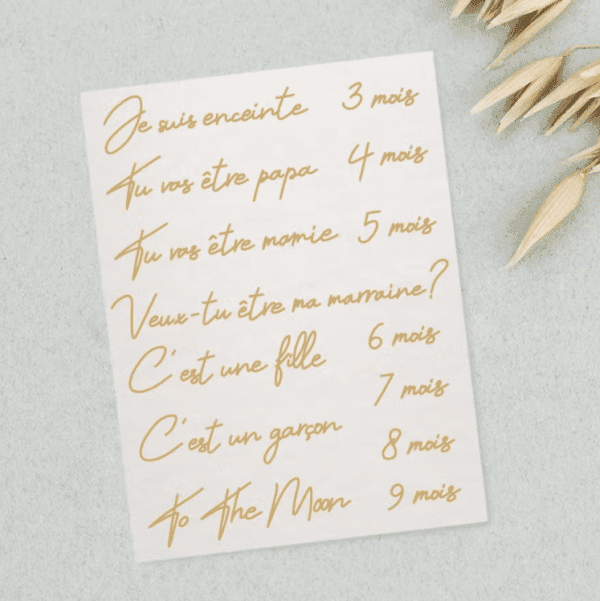 Je suis enceinte 3 mois
Tu vas être papa 4 mois
Tu vas être mamie 5 mois
Veux-tu être ma marraine?
C'est une fille 6 mois
7 mois
C'est un garçon 8 mois
To The Moon 9 mois